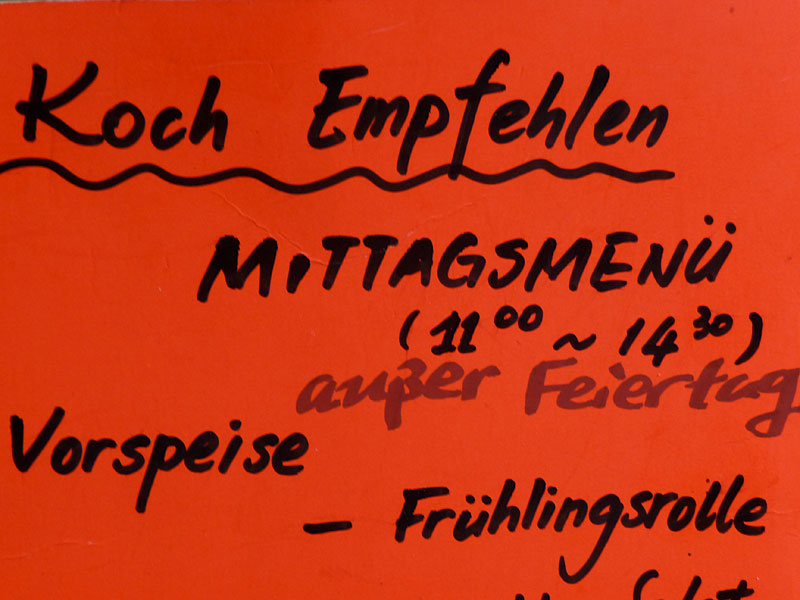 Koch Empfehlen
MITTAGSMENÜ
(11⁰⁰ ~ 14³⁰)
außer Feiertag
Vorspeise
– Frühlingsrolle